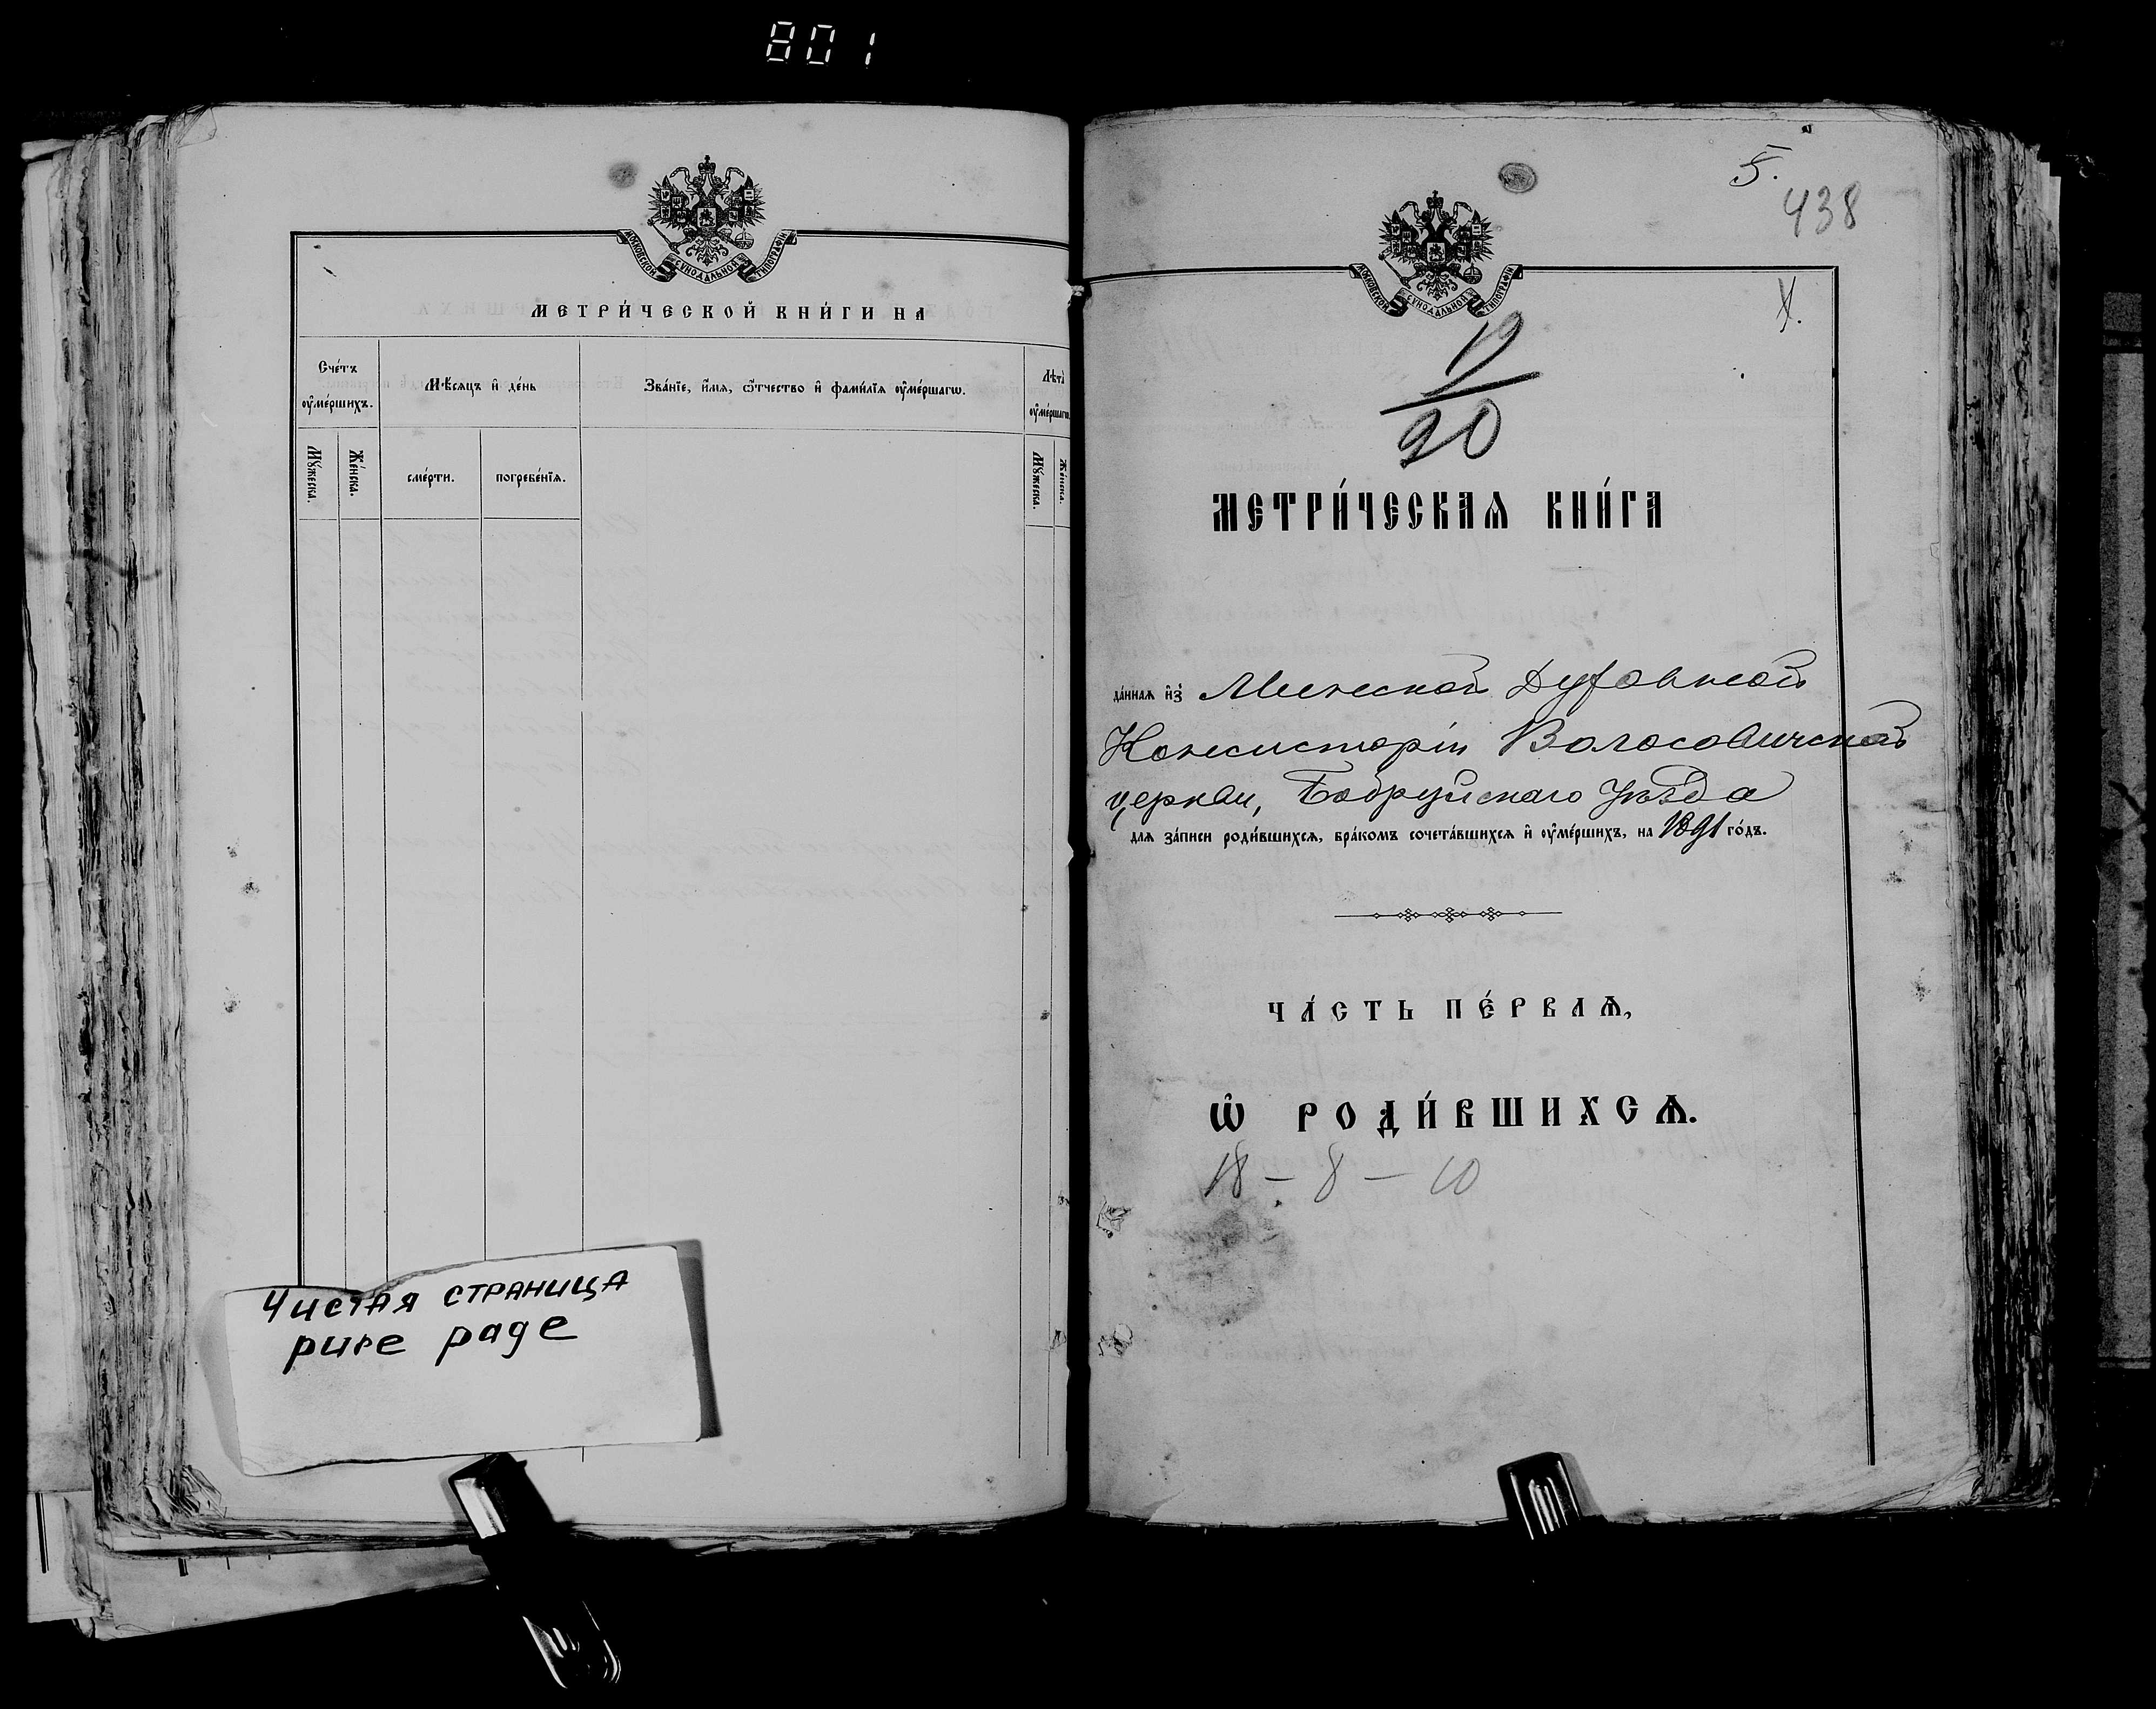 801
МОСКОВСКОЙ СѴНОДАЛЬНОЙ ТИПОГРАФІИ
МЕТРИ́ЧЕСКОЙ КНИ́ГИ НА
Сче́тъ ᲂу҆ме́ршихъ.
Мѣ́сяцъ и҆ де́нь
Зва́нїе, и҆́мѧ, ѻ҆́тчество и҆ фами́лїѧ ᲂу҆ме́ршагѡ.
Лѣта̀ ᲂу҆ме́ршагѡ
Мꙋ́жеска.
Же́нска.
сме́рти.
погребе́нїѧ.
Мꙋ́жеска.
Же́нска.
Чистая страница
pure page
5.
438
МОСКОВСКОЙ СѴНОДАЛЬНОЙ ТИПОГРАФІИ
X.
МЕТРИ́ЧЕСКАѦ КНИ́ГА
да́ннаѧ и҆з̾ Минской Духовной
Консисторіи Волосовичской
церкви, Бобруйскаго уѣзда
длѧ за́писи роди́вшихсѧ, бра́комъ сочета́вшихсѧ и҆ ᲂу҆ме́ршихъ, на 1891 го́дъ.
ЧА́СТЬ ПЕ́РВАѦ,
Ѡ҆ РОДИ́ВШИХСѦ.
18 – 8 – 10